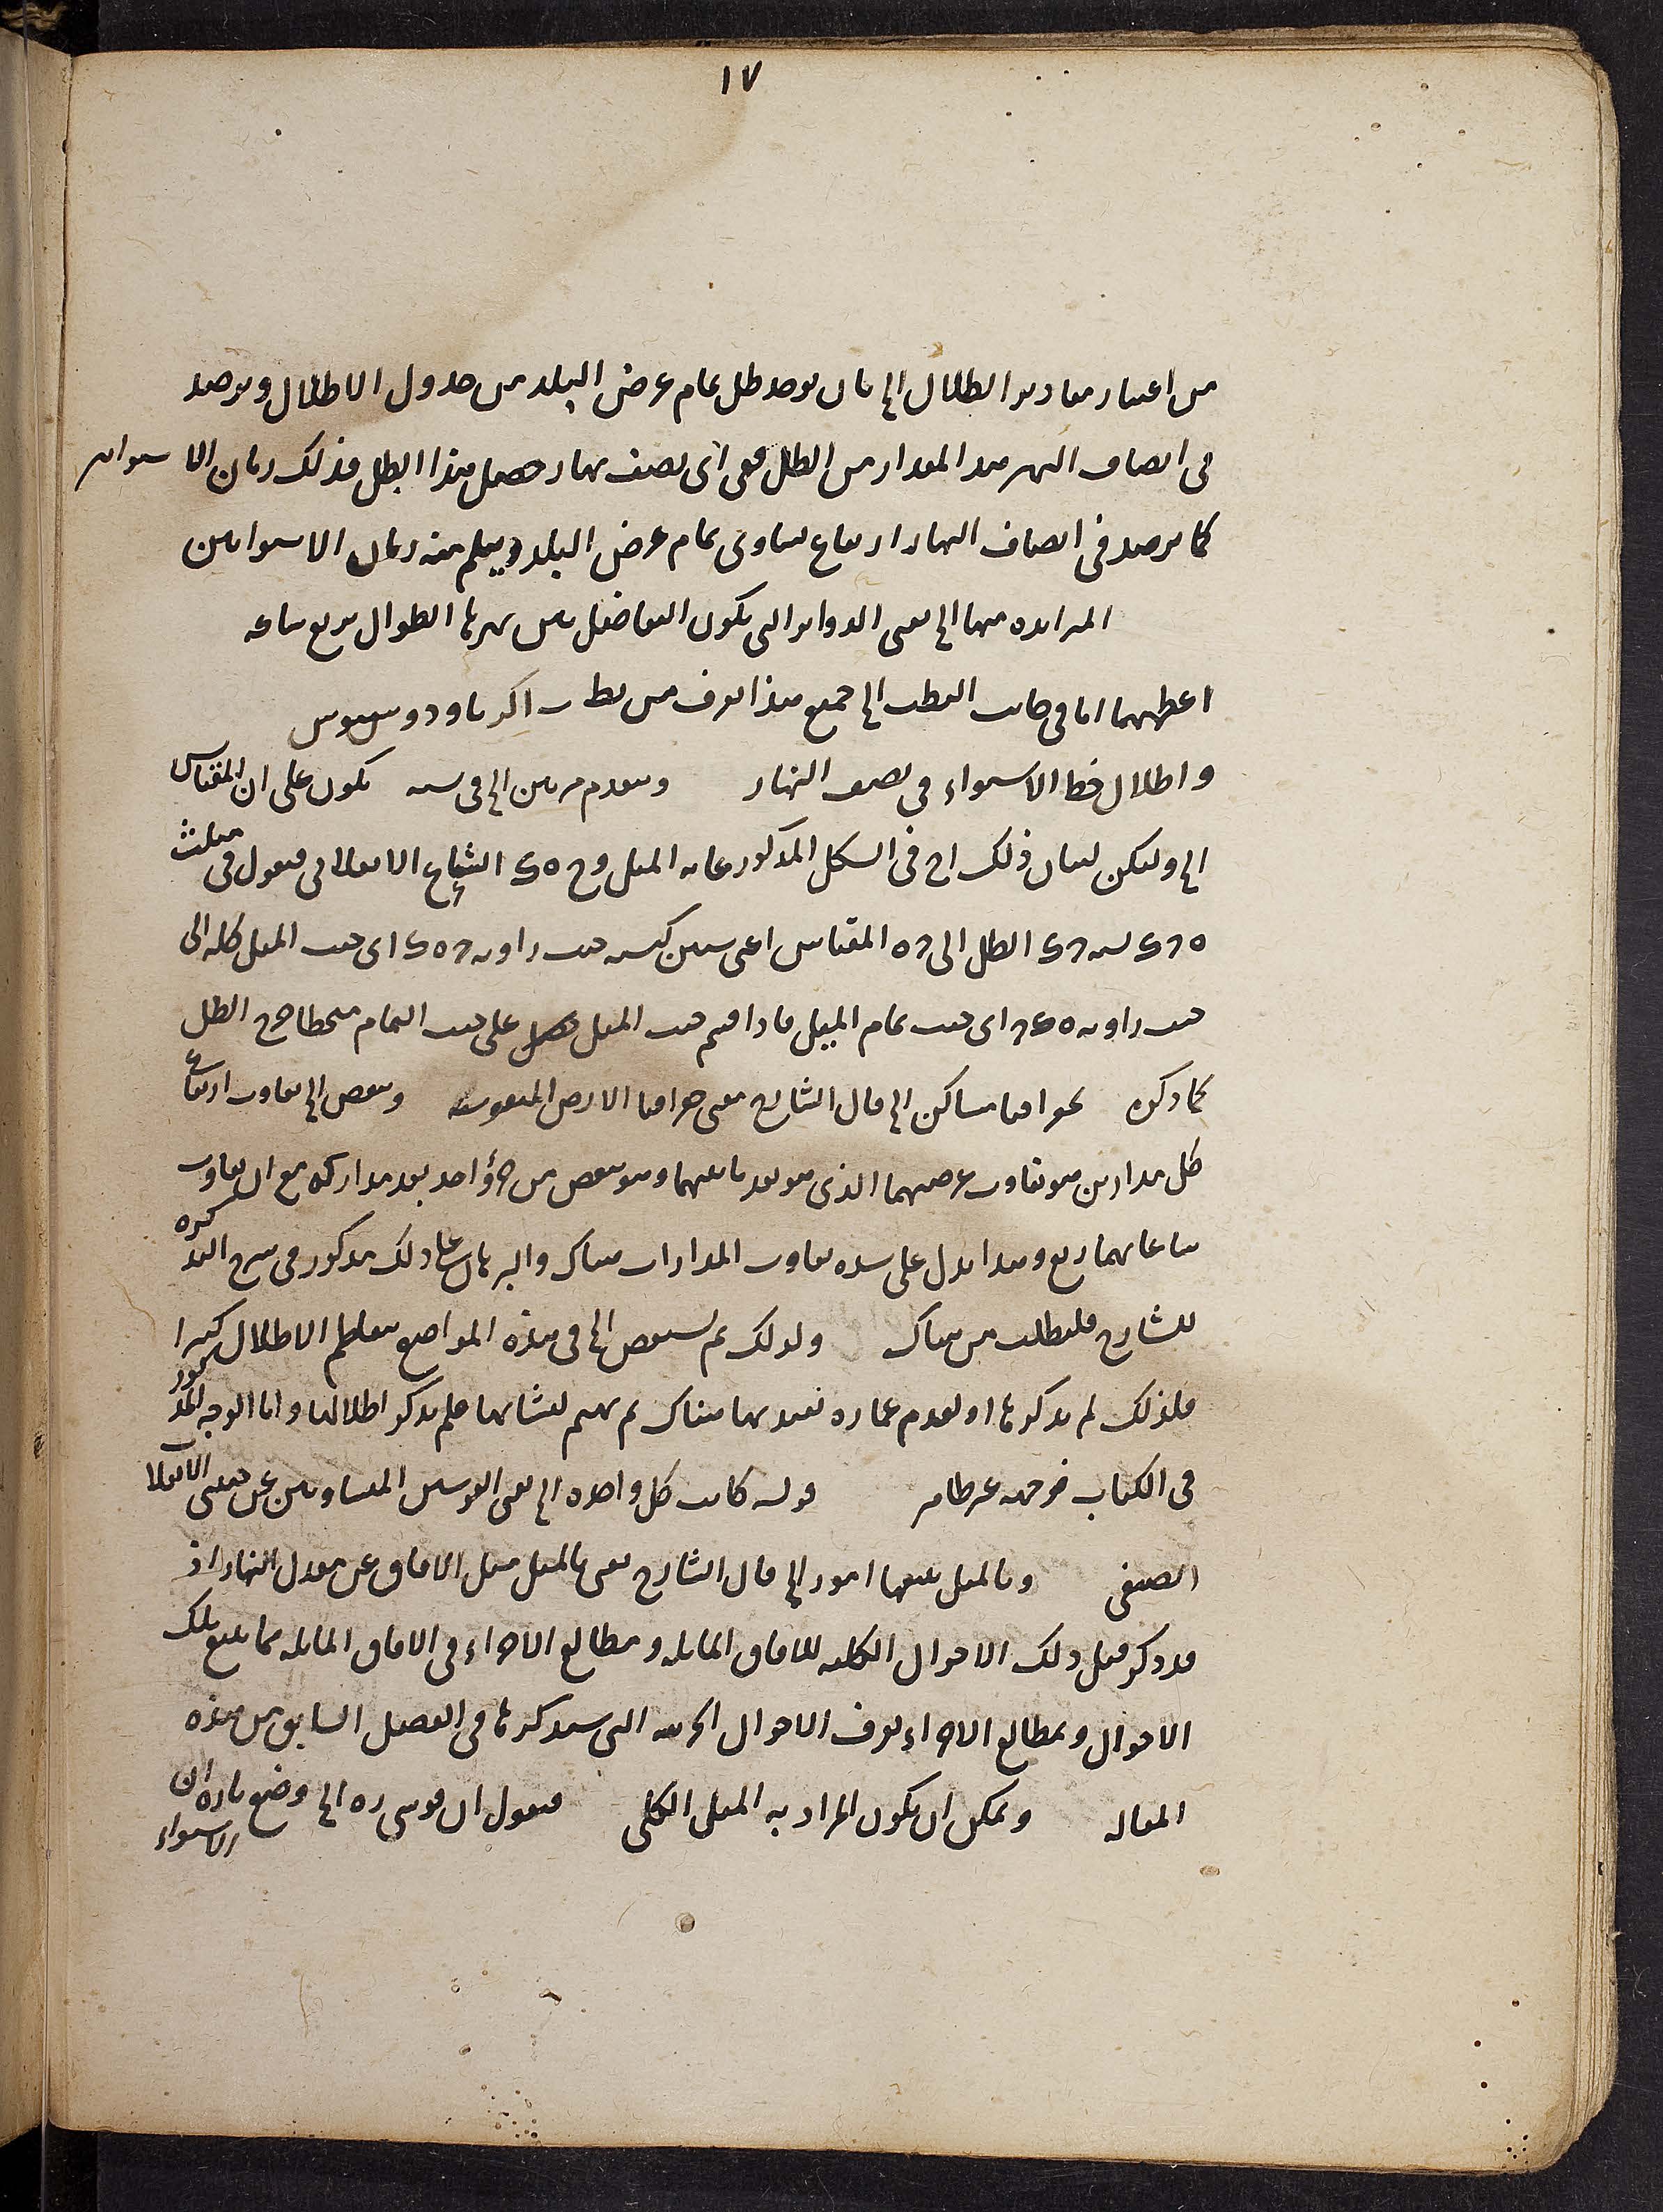 ١٧
من اعتبار مقادير الظلال الخ بان يوجد ظل تمام عرض البلد من جدول الاظلال ويرصد
فى انصاف النهر هذا المقدار من الظل ففى اى نصف نهار حصل هذا الظل فذلك زمان الاستواءين
كما يرصد فى انصاف النهار ارتفاع يساوى تمام عرض البلد ويعلم منه زمان الاستواءين
المزايدة منها الخ يعنى الدواير التى يكون التفاضل بين نهرها الطوال بربع ساعة
اعظمهما اما فى جانب القطب الخ جميع هذا يعرف من اكر ثاودوسيوس
واظلال خط الاستواء فى نصف النهار وتقدم مرتين الخ فى يكون على ان المقياس
الخ وليكن لبيان ذلك ا ح فى الشكل المذكور غاية الميل و ح ه د الشعاع الانقلابى فنقول فى مثلث
ه ح د نسبة ح د الظل الى ح ه المقياس اعنى ستين كنسبة جيب زاوية ح ه د اى جيب الميل كله الى
جيب زاوية ه د ح اى جيب تمام الميل فاذا قسم جيب الميل على جيب التمام منحطا خرج الظل
كما ذكره نحو اقيا مساكن الخ قال الشارح الارض وينقص الخ تفاوت ارتفاع
ظل مدارين هو تفاوت عرضيهما الذى هو بعد ما بينهما وهو ينقص من جزؤ واحد بعد مدار كه مع ان تفاوت
ساعاتهما ربع وهذا يدل على شدة تفاوت المدارات هناك والبرهان على ذلك مذكور فى شرح التذكرة
للشارح فليطلب من هناك ولذلك لم الخ فى هذه المواضع الاظلال كثيرا
فلذلك لم يذكرها او لعدم عمارة يعتد بها هناك لم يهتم لشانها فلم يذكر اظلالها واما الوجه المذكور
فى الكتاب فوجهه غير ظاهر قوله كانت كل واحدة الخ يعنى القوسين المتساويتين عن جنبتى الانقلاب
الصيفى وبالميل بينها امور الخ قال الشارح يعنى بالميل ميل الافاق عن معدل النهار اذ
قد ذكر قبل ذلك الاحوال الكلية للافاق المايلة ومطالع الاجزاء فى الافاق المايلة مما يتبع تلك
الاحوال وبمطالع الاجزاء يعرف الاحوال الجزئية التى سيذكرها فى الفصل السابع من هذه
المقالة ويمكن ان يكون المراد به الميل الكلى فنقول ان قوسى ر ه الخ وضع بازاء ان
الاستواء